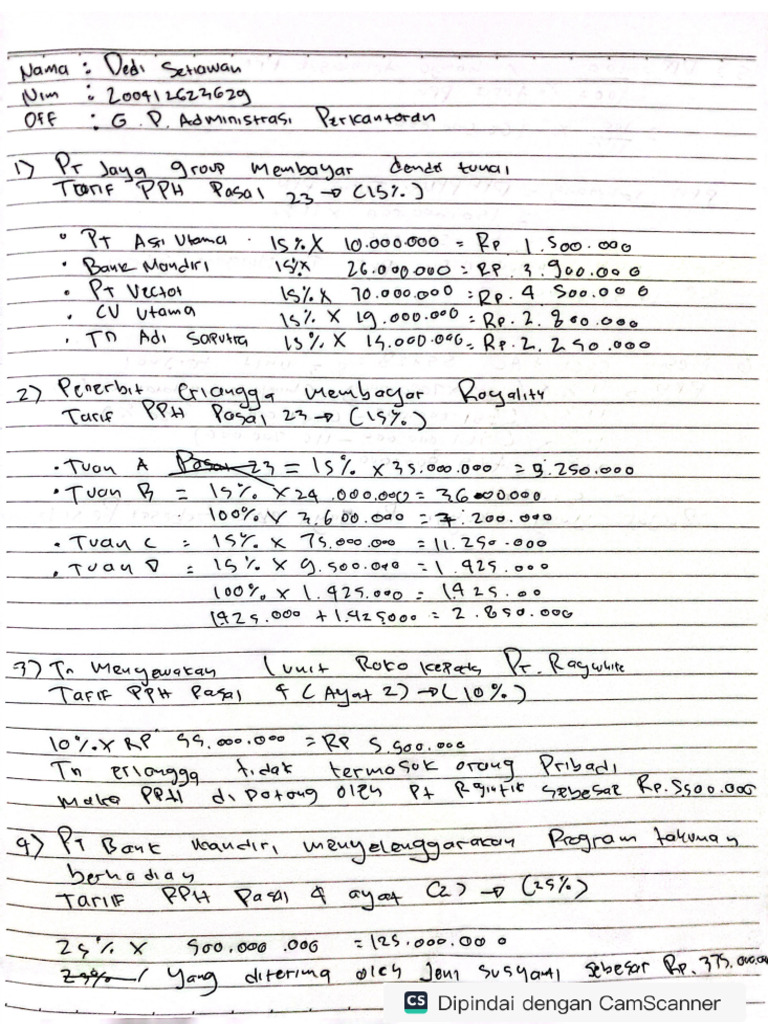 Nama : Dedi Setiawan
Nim : 200412623629
OFF : G. P. Administrasi Perkantoran
1) PT Jaya group membayar tunai
Tarif PPH Pasal 23 → (15%)
• PT Asi Utama 15% X 10.000.000 = Rp 1.500.000
• Bank Mandiri 15% X 26.000.000 = RP. 3.900.000
• PT Vector 15% X 70.000.000 = Rp. 4 500.000
• CV Utama 15% X 19.000.000 = Rp. 2.800.000
• Tn Adi Saputra 15% X 15.000.000 = Rp. 2.250.000
2) Penerbit Erlangga membayar Royality
Tarif PPH Pasal 23 → (15%)
• Tuan A = 15% X 35.000.000 = 5.250.000
• Tuan B = 15% X 24.000.000 = 3600000
100% X 3.600.000 = 7.200.000
• Tuan C = 15% X 75.000.000 = 11.250.000
• Tuan D = 15% X 9.500.000 = 1.425.000
100% X 1.425.000 = 1425.00
1425.000 + 1.425000 = 2.850.000
3) Tn Menyewakan 1 unit Roko kepada PT. Raywhite
Tarif PPH Pasal 4 (Ayat 2) → (10%)
10% X RP 55.000.000 = RP 5.500.000
Tn erlangga tidak termasuk orang Pribadi
Maka PPH di potong oleh Pt sebesar Rp.5500.000
4) PT Bank Mandiri menyelenggarakan Program tahunan
berhadiah
Tarif PPH Pasal 4 ayat (2) → (25%)
25% X 500.000.000 = 125.000.000
Yang diterima oleh Jeni Susyanti sebesar Rp. 375.000.000
CS Dipindai dengan CamScanner